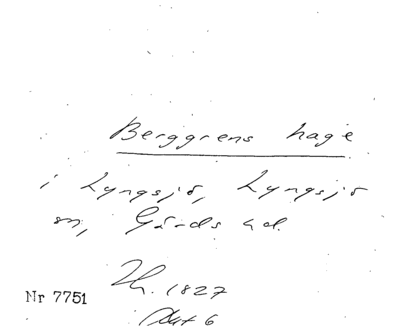 Berggrens hage
i Lyngsjö, Lyngsjö
sn, Gärds hd.
Th. 1827
Nr 7751
6